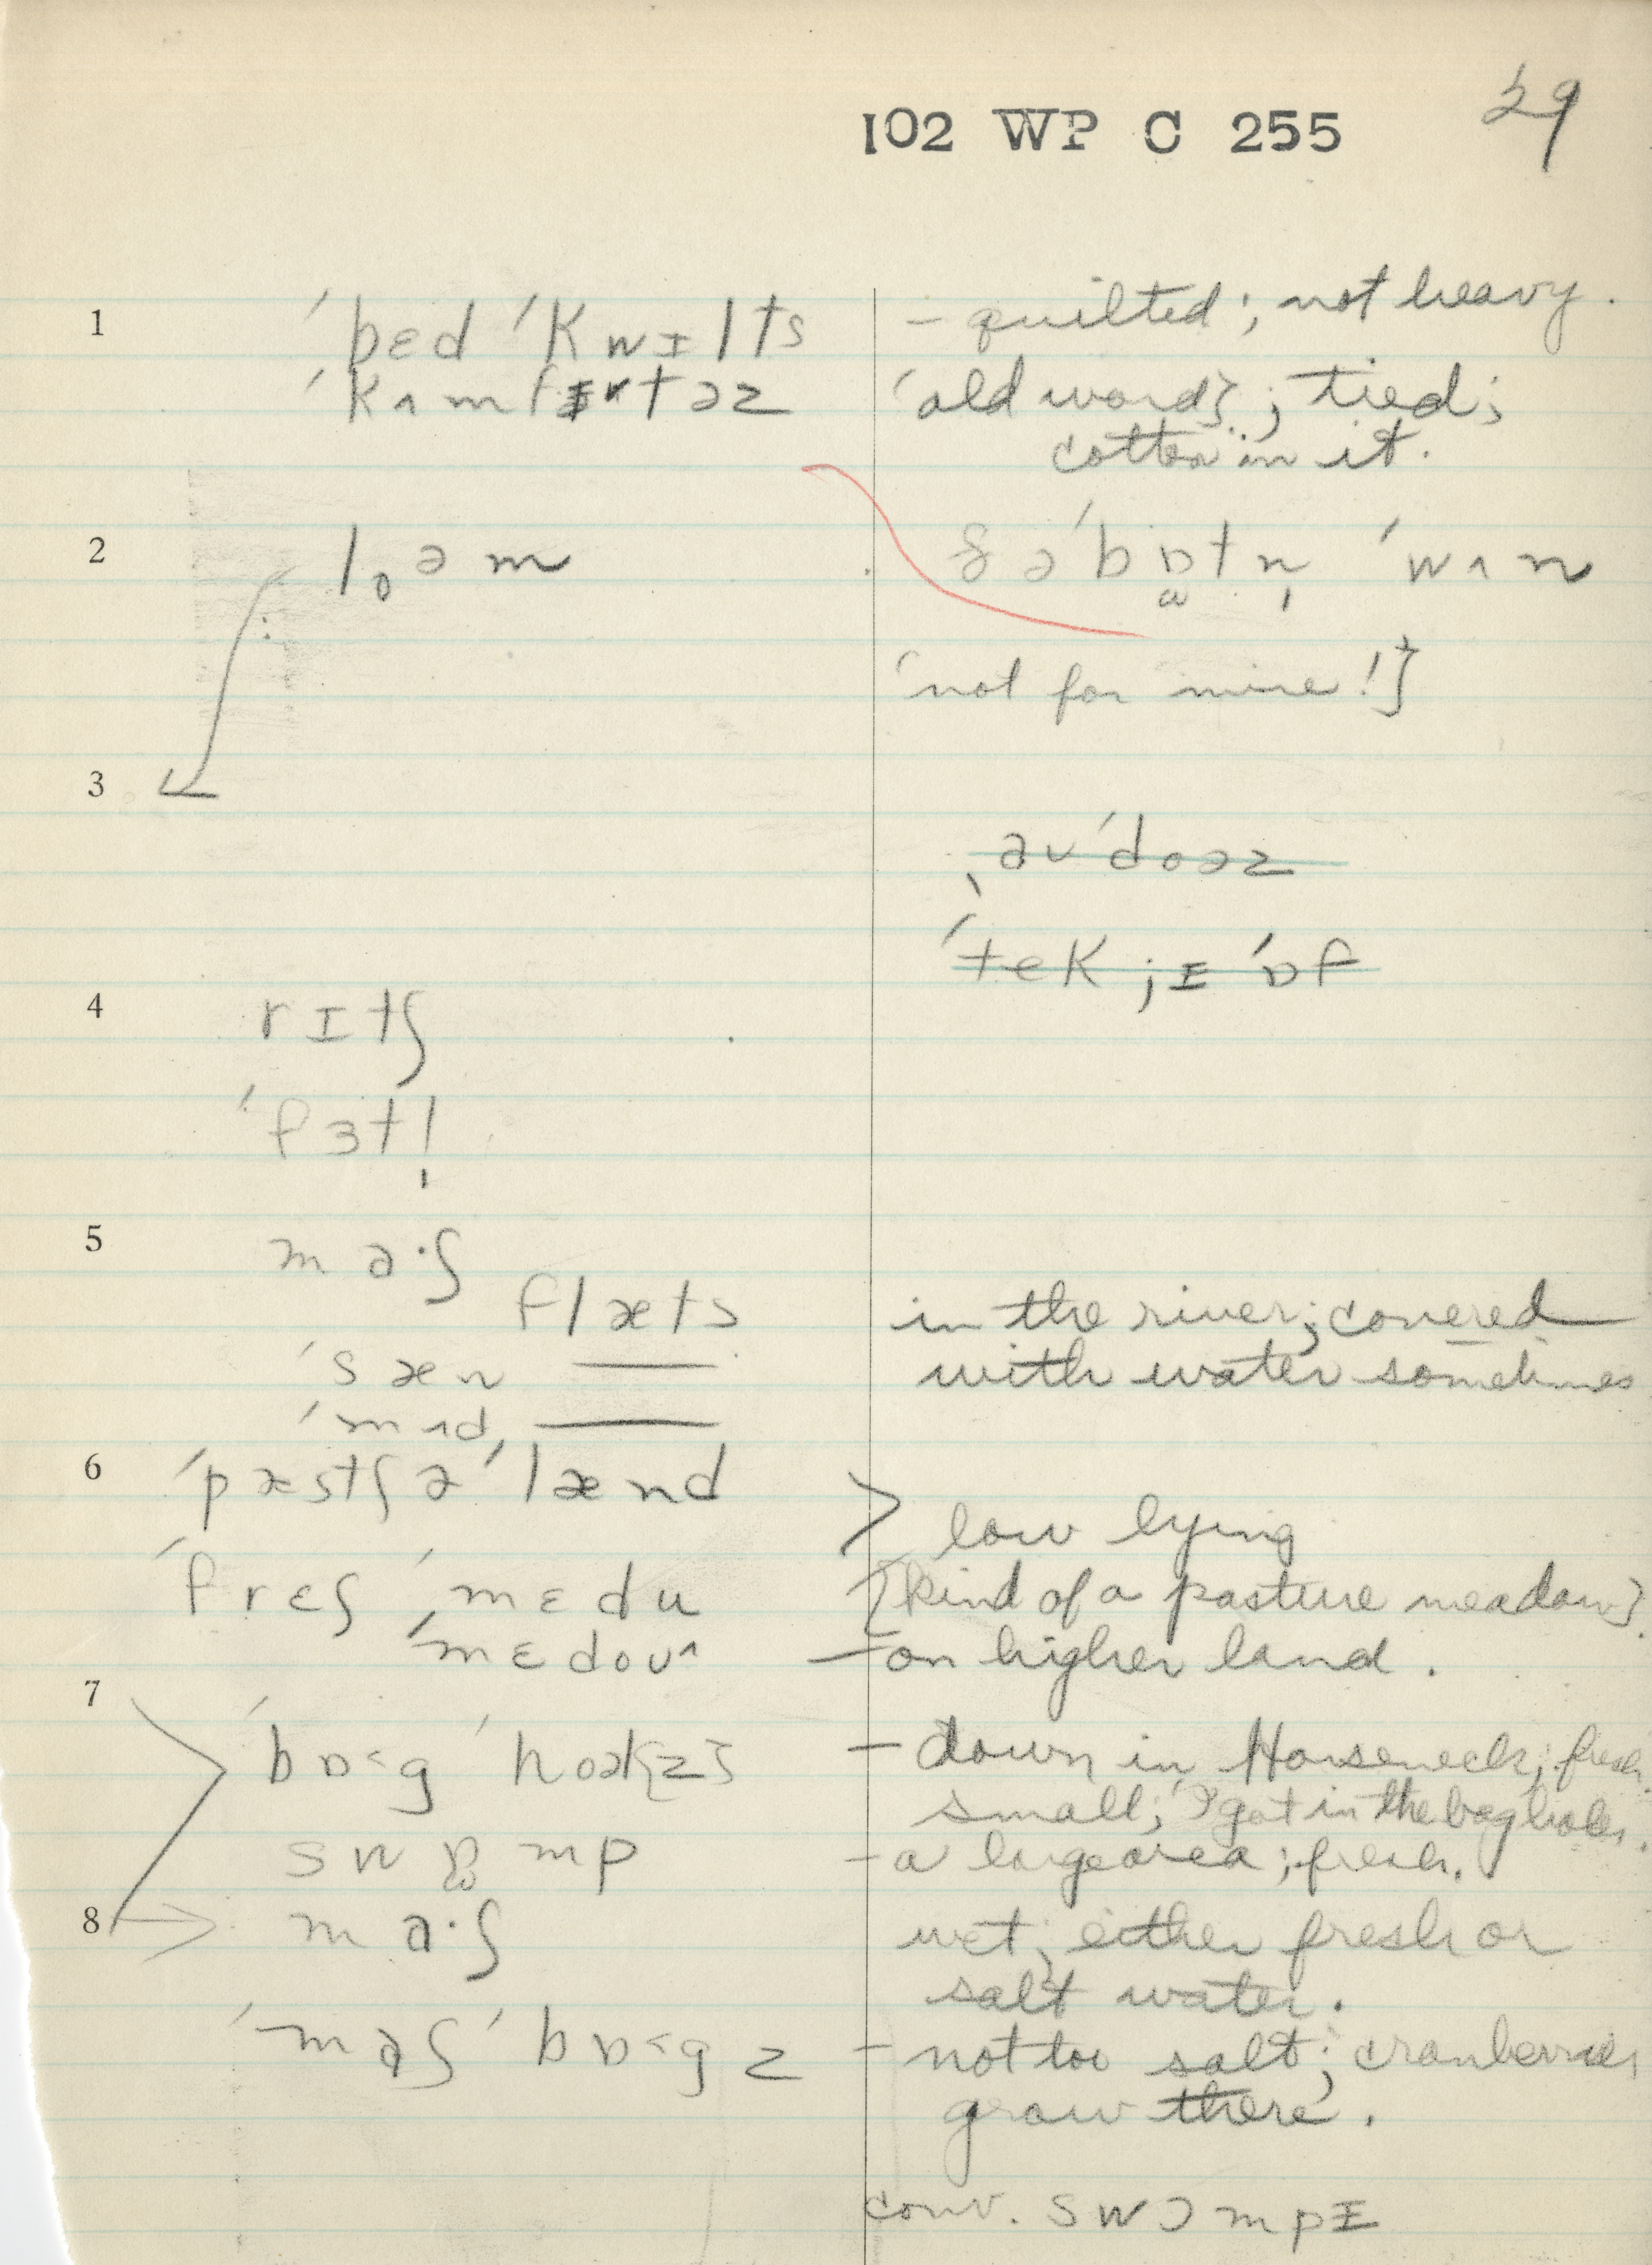 102 WP C 255 29
1 ˈbɛd ˈkwɪlts – quilted; not heavy.
ˈkʌmfɪrtəz 'old word}; tied;
cotton in it.
2 ˈbɒtn̩ ˈwʌn
'not for mine!}
3
ˌəvˈdoəz
ˈtek ; ɪ ˈɒf
4 rɪtʃ
ˈfɜtl̩
5 ma·ʃ
flæts in the river; covered
ˈsæn —— with water sometimes
ˈmʌd, ——
6 ˈpæstʃə ˈlænd
> low lying
ˈfrɛʃ ˌmɛdu [kind of a pasture meadow}.
ˈmɛdoʊ^ – on higher land.
7
ˈbɒ˂g ˈhoəl{z} – down in Horseneck; fresh.
small; 'I got in the bog holes.
swɒmp – a large area; fresh.
8 → ma·ʃ wet; either fresh or
salt water.
ˈmaʃ ˈbɒ˂gz – not too salt; cranberries
grow there.
conv. swɔmpɪ